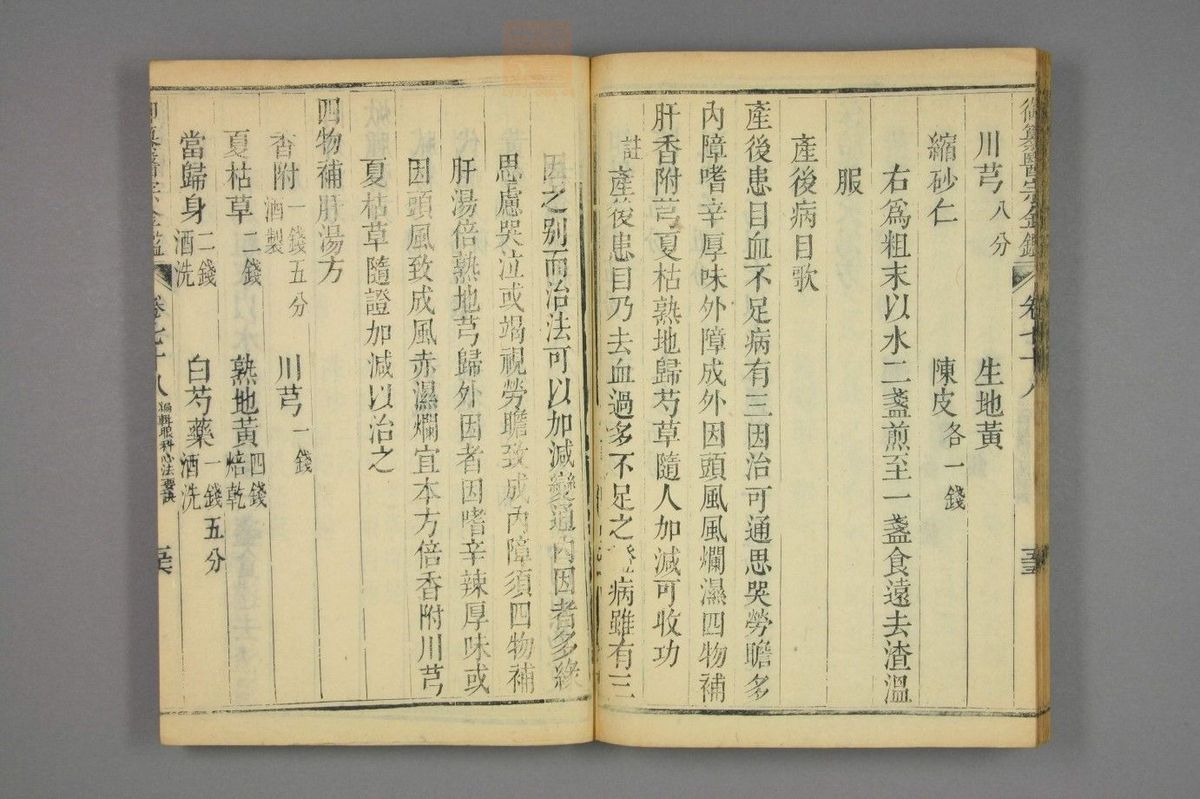 御纂醫宗金鑑 卷七十八
川芎八分 生地黃
縮砂仁 陳皮各一錢
右爲粗末以水二盞煎至一盞食遠去渣溫
服
產後病目歌
產後患目血不足病有三因治可通思哭勞瞻多
內障嗜辛厚味外障成外因頭風風爛濕四物補
肝香附芎夏枯熟地歸芍草隨人加減可收功
註產後患目乃去血過多不足之 病雖有三
因之別而治法可以加減變通內因者多緣
思慮哭泣或竭視勞瞻致成內障須四物補
肝湯倍熟地芎歸外因者因嗜辛辣厚味或
因頭風致成風赤濕爛宜本方倍香附川芎
夏枯草隨證加減以治之
四物補肝湯方
香附一錢五分酒製 川芎一錢
夏枯草二錢 熟地黃四錢焙乾
當歸身二錢酒洗 白芍藥一錢五分酒洗
御纂醫宗金鑑 卷七十八 編輯眼科心法要訣